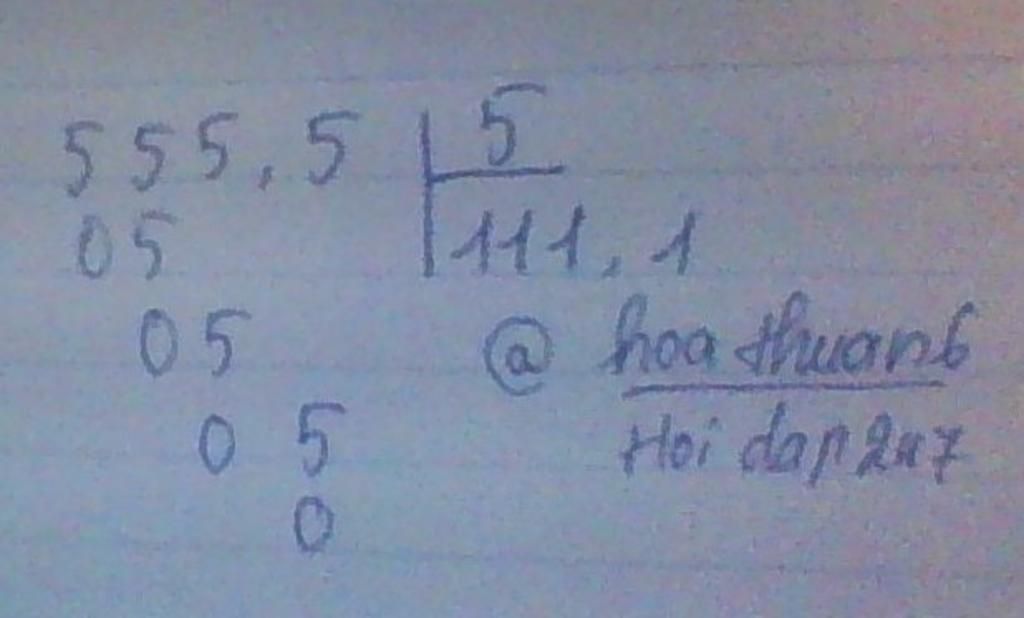 555,5 | 5
05 | 111,1
05 @ hoa thuan6
0 5 Hoi dap 247
0